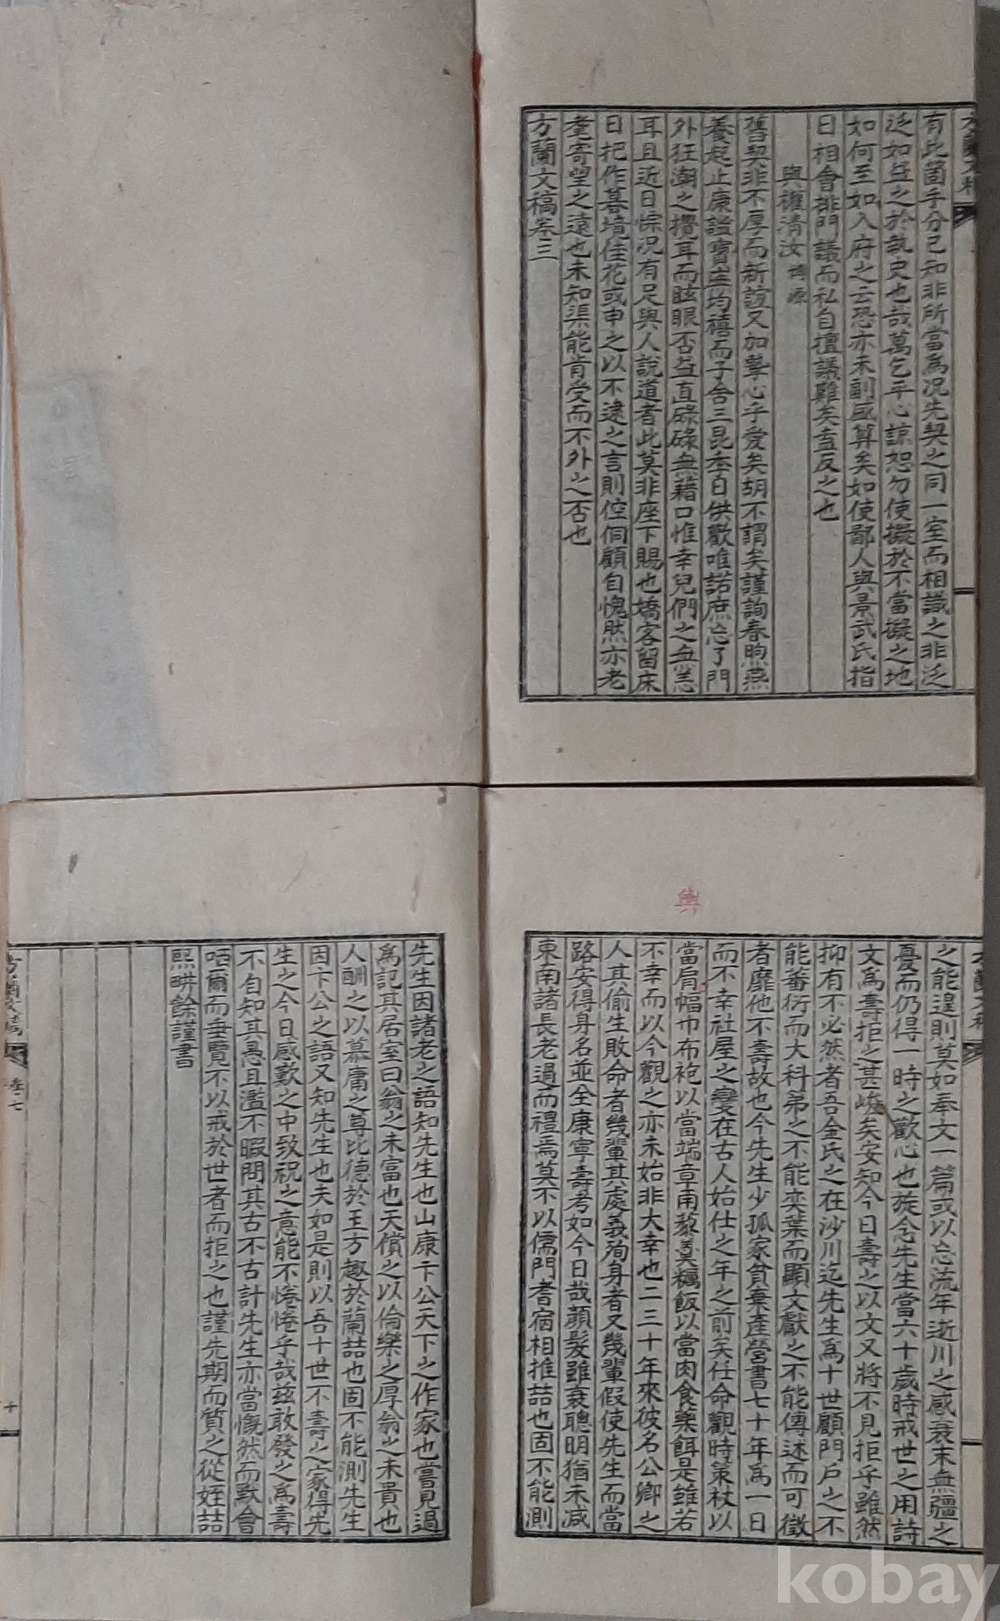 有此箇乎分已知非所當爲况先契之同一室而相識之非泛
泛如益之於執史也哉萬乞平心諒恕勿使擬於不當擬之地
如何至如入府之云恐亦未副盛算矣如使鄙人與景武氏指
日相會排門議而私自擅議難矣盍反之也
與權淸汝
舊契非不厚而新誼又加摯心乎愛矣胡不謂矣謹詢春煦燕
養起止康謐寶庄均禧而子舍三昆季日供歡唯諾庶忘了門
外狂潮之攪耳而眩眼否益直碌碌無藉口惟幸兒們之無恙
耳且近日悰况有足與人說道者此莫非座下賜也嬌客留床
日把作暮境佳花或申之以不逮之言則倥侗顧自愧然亦老
耄寄望之遠也未知渠能肯受而不外之否也
方蘭文稿卷三
之能遑則莫如奉文一篇或以忘流年逝川之感衰末無疆之
憂而仍得一時之歡心也旋念先生當六十歲時戒世之用詩
文爲壽拒之甚峻矣安知今日壽之以文又將不見拒乎雖然
抑有不必然者吾金氏之在沙川迄先生爲十世顧門戶之不
能蕃衍而大科弟之不能奕葉而顯文獻之不能傳述而可徵
者靡他不壽故也今先生少孤家貧棄產營書七十年爲一日
而不幸社屋之變在古人始仕之年之前矣任命觀時策杖以
當肩幅巾布袍以當端章甫藜羹糲飯以當肉食樂餌是雖若
不幸而以今觀之亦未始非大幸也二三十年來彼名公卿之
人其偷生敗命者幾輩其處義殉身者又幾輩假使先生而當
路安得身名並全康寧壽考如今日哉顏髮雖衰聰明猶未减
東南諸長老過而禮焉莫不以儒門耆宿相推喆也固不能測
先生因諸老之語知先生也山康卞公天下之作家也嘗見過
爲記其居室曰翁之未富也天償之以倫樂之厚翁之未貴也
人酬之以慕庸之尊比德於王方趣於蘭喆也固不能測先生
因卞公之語又知先生也夫如是則以吾十世不壽之家得先
生之今日感歎之中致祝之意能不惓惓乎哉玆敢發之爲壽
不自知其愚且濫不暇問其古不古計先生亦當慨然而默會
哂爾而垂覽不以戒於世者而拒之也謹先期而質之從姪喆
熙畊餘謹書
方蘭文稿
卷七
十
kobay